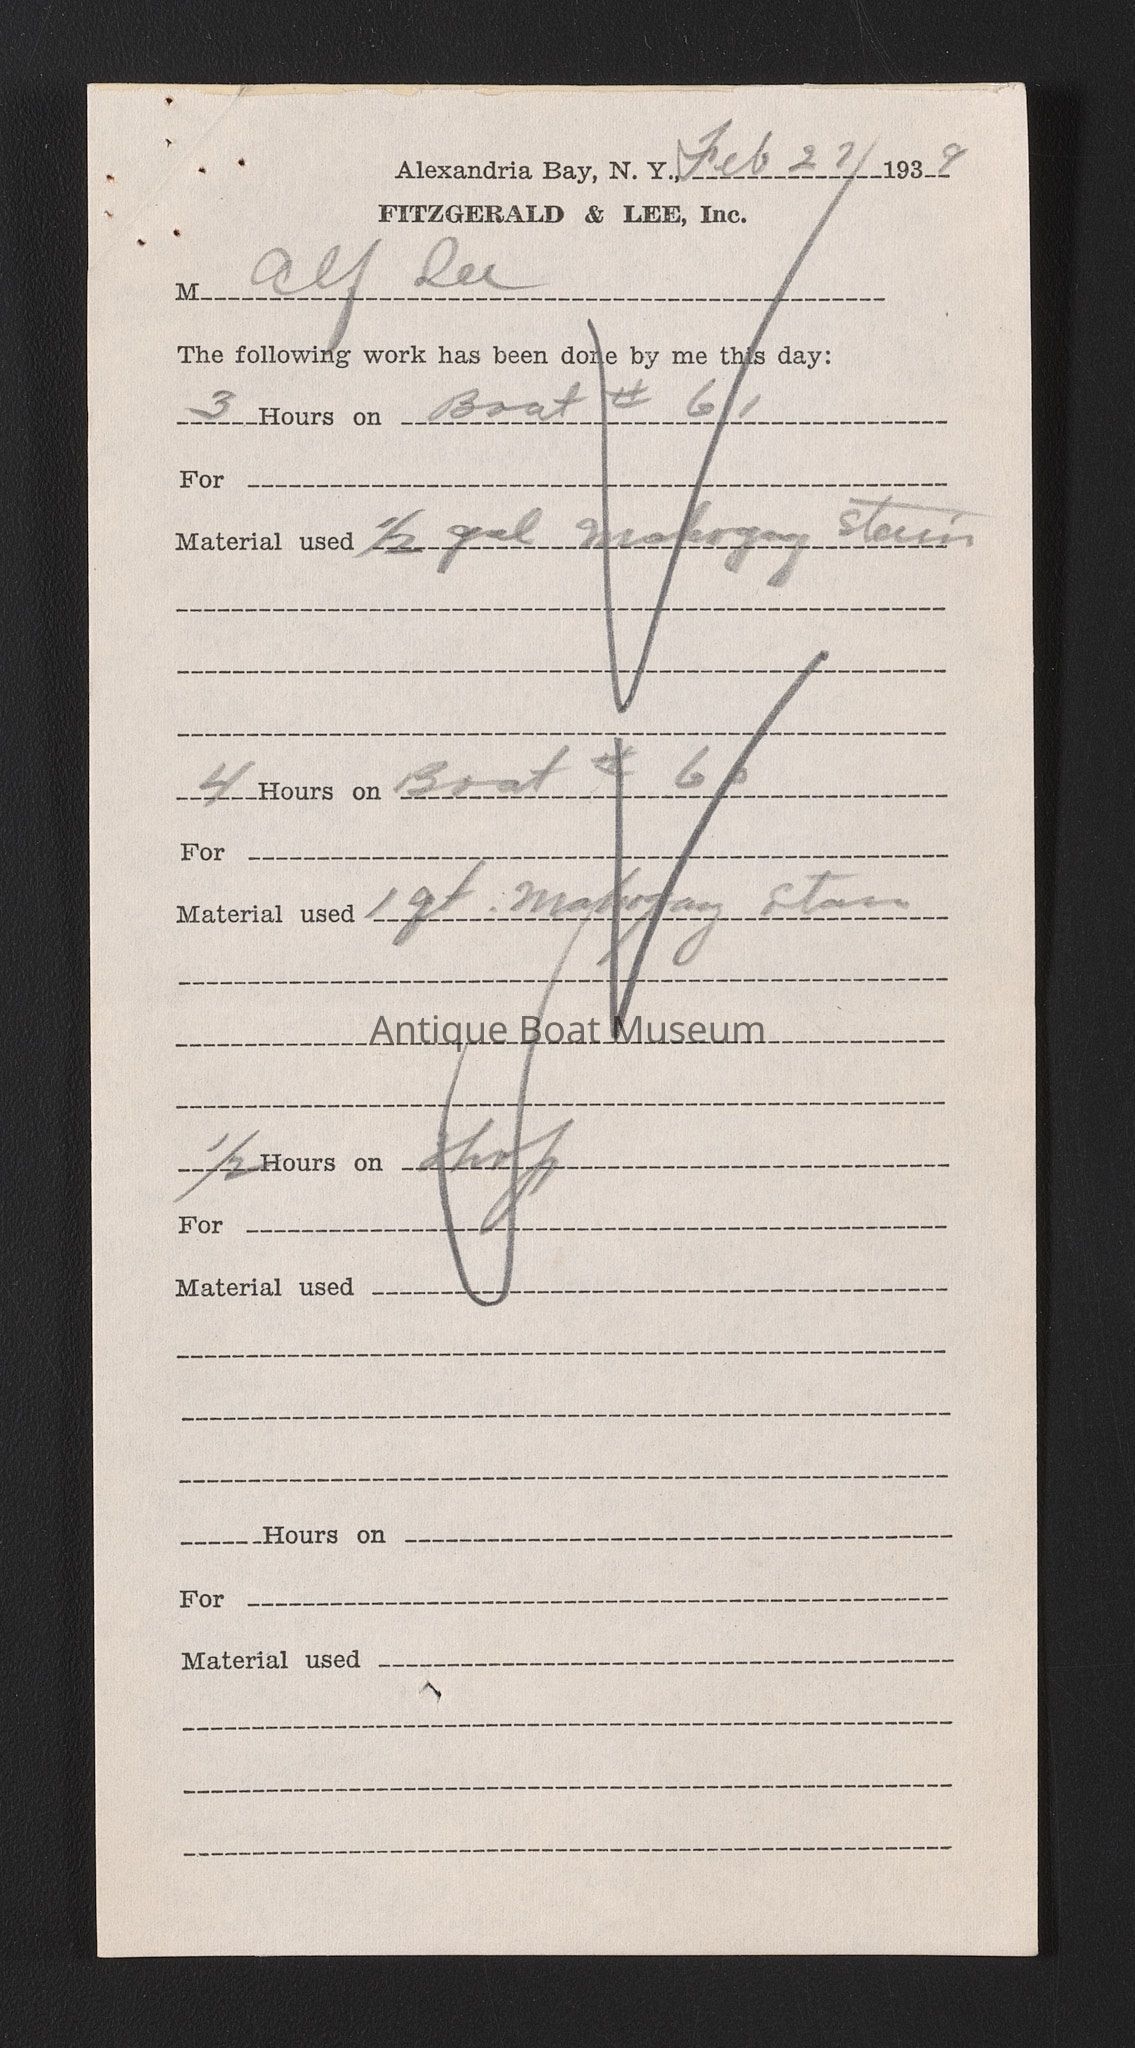 Alexandria Bay, N. Y., Feb 27 1939
FITZGERALD & LEE, Inc.
M Alf Lee
The following work has been done by me this day:
3 Hours on Boat # 61
For
Material used 1/2 gal Mahogay Stain
4 Hours on Boat # 60
For
Material used 1 qt. Mahogay Stain
Antique Boat Museum
1/2 Hours on Shop
For
Material used
Hours on
For
Material used